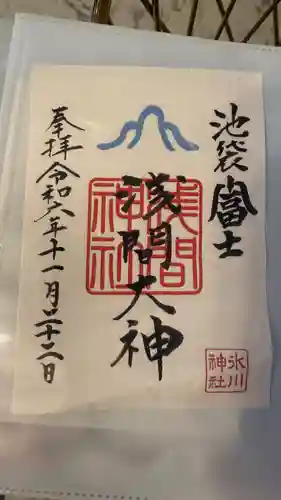 池袋富士
浅間大神
浅間神社
奉拝 令和六年十一月二十二日
氷川神社